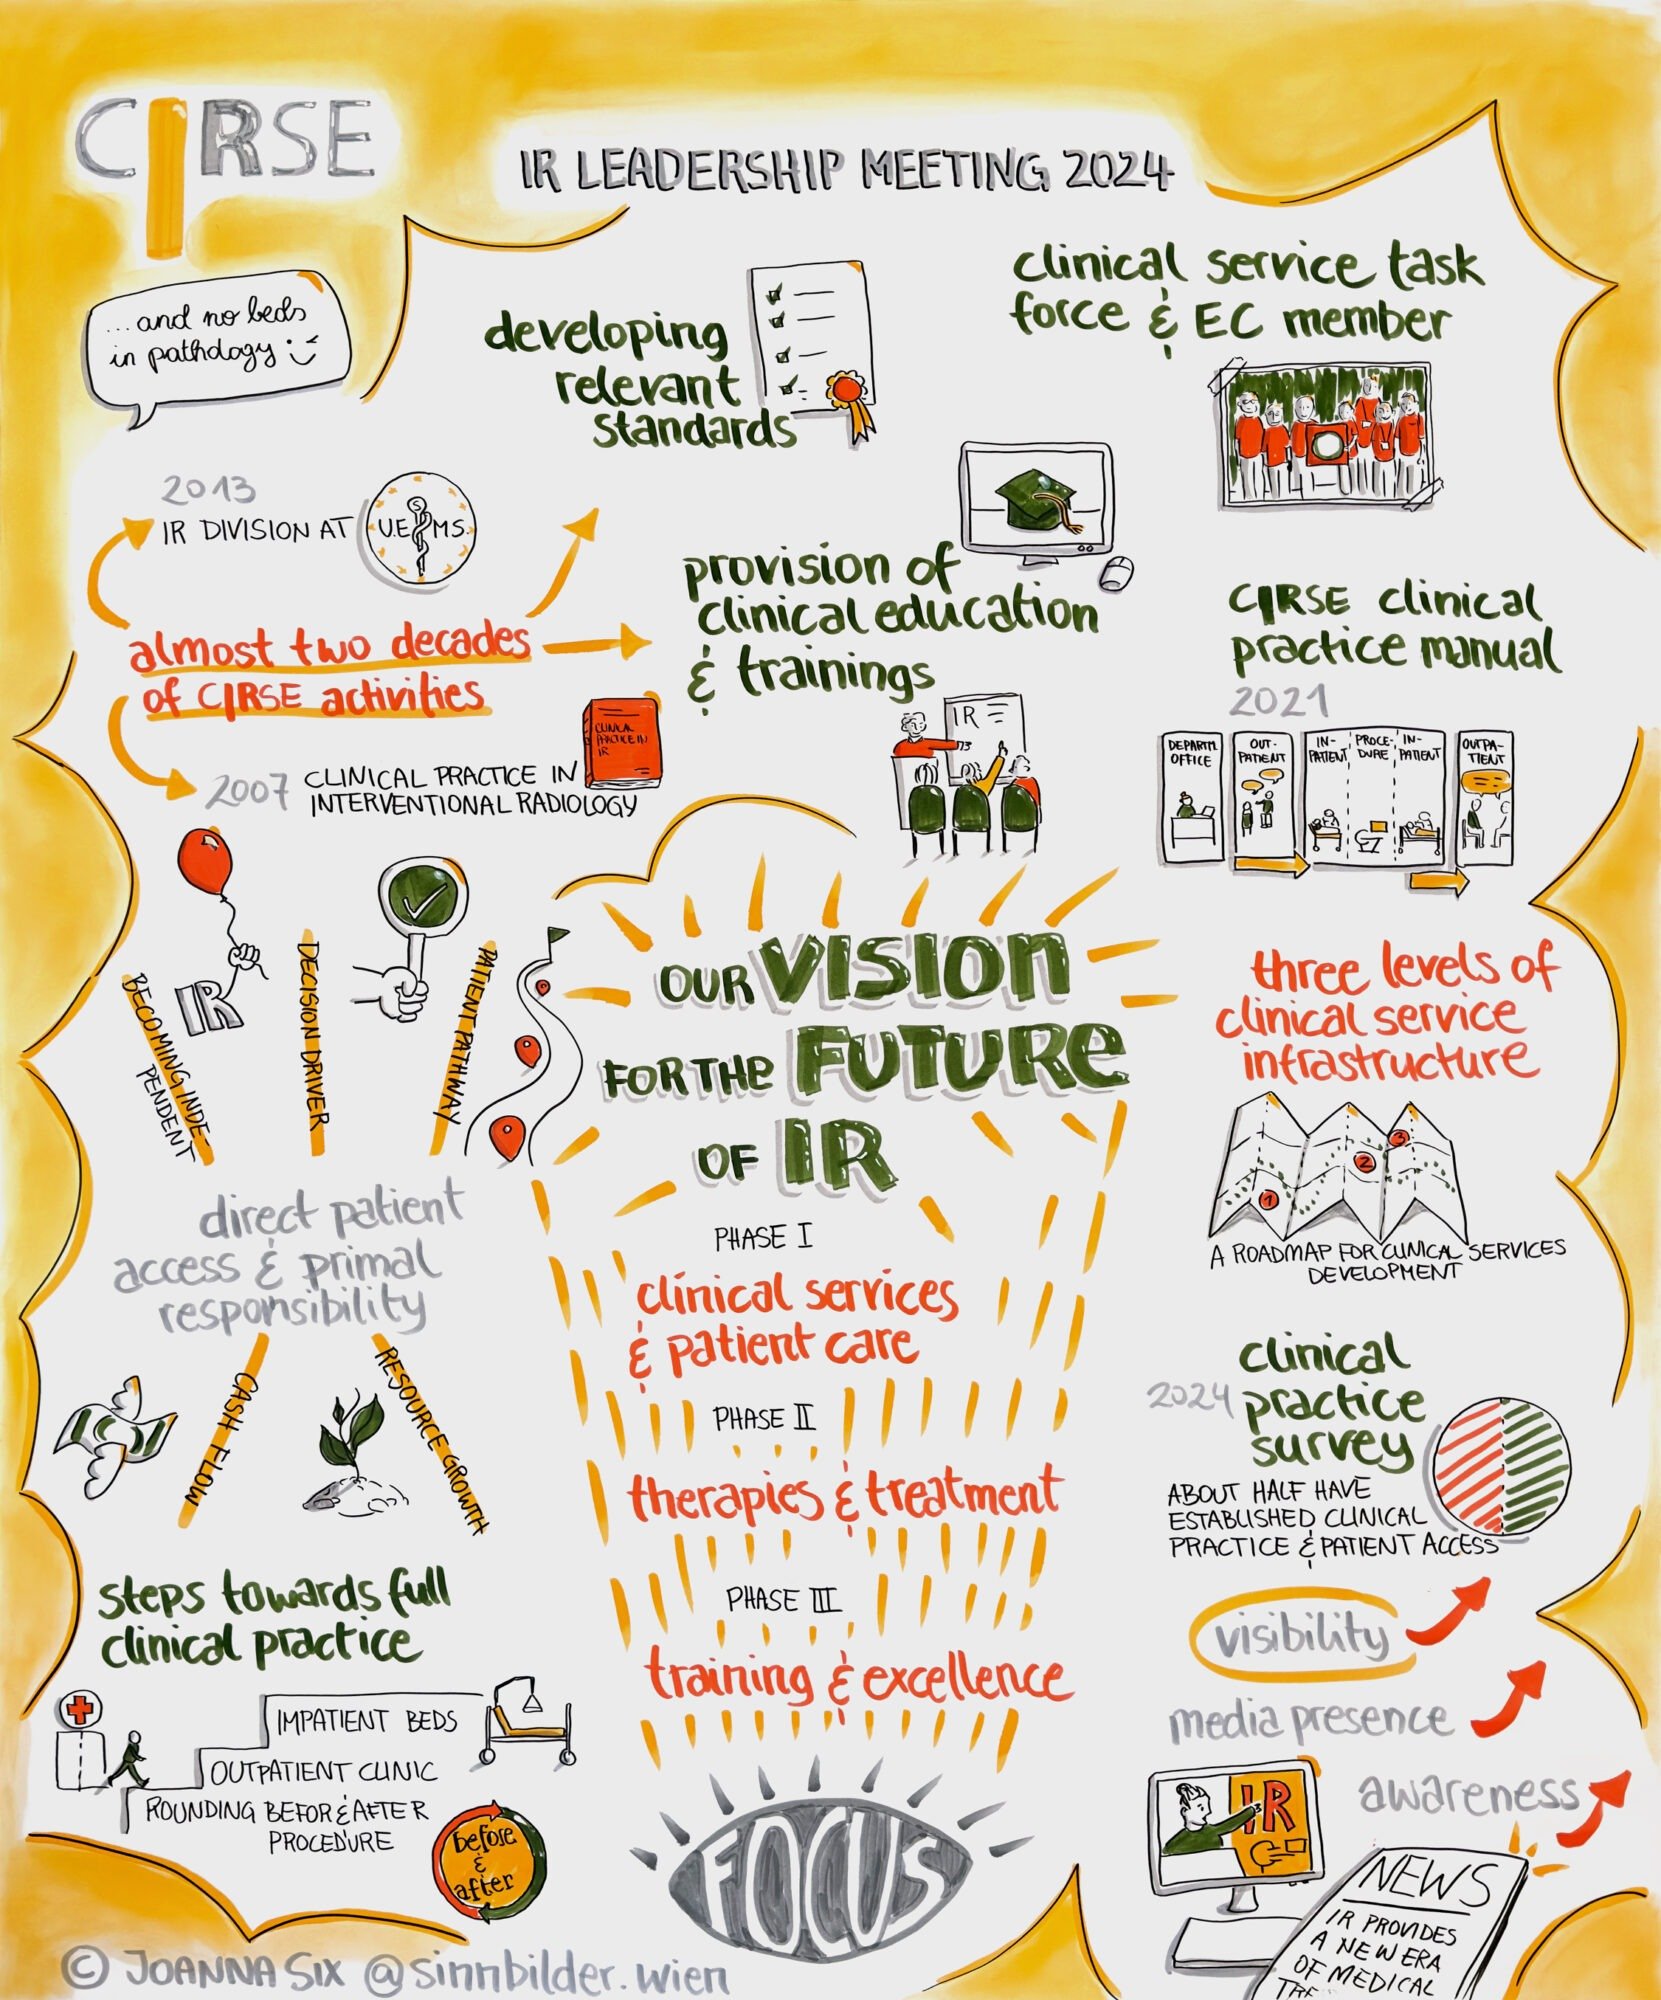 CIRSE
IR LEADERSHIP MEETING 2024
...and no beds
in pathology
developing
relevant
standards
clinical service task
force & EC member
2013
IR DIVISION AT
U.E.M.S.
S
almost two decades
of CIRSE activities
2007
CLINICAL PRACTICE IN
INTERVENTIONAL RADIOLOGY
CLINICAL
PRACTICE IN
IR
provision of
clinical education
& trainings
IR
CIRSE clinical
practice manual
2021
DEPARTM.
OFFICE
OUT-
PATIENT
IN-
PATIENT
PROCE-
DURE
IN-
PATIENT
OUTPA-
TIENT
IR
BECOMING INDE-
PENDENT
DECISION DRIVER
PATIENT PATHWAY
direct patient
access & primal
responsibility
CASH FLOW
RESOURCE GROWTH
OUR VISION
FOR THE FUTURE
OF IR
PHASE I
clinical services
& patient care
PHASE II
therapies & treatment
PHASE III
training & excellence
FOCUS
three levels of
clinical service
infrastructure
1
2
3
A ROADMAP FOR CLINICAL SERVICES
DEVELOPMENT
2024
clinical
practice
survey
ABOUT HALF HAVE
ESTABLISHED CLINICAL
PRACTICE & PATIENT ACCESS
visibility
media presence
awareness
IR
NEWS
IR PROVIDES
A NEW ERA
OF MEDICAL
steps towards full
clinical practice
IMPATIENT BEDS
OUTPATIENT CLINIC
ROUNDING BEFORE & AFTER
PROCEDURE
before
&
after
© JOANNA SIX @sinnbilder.wien